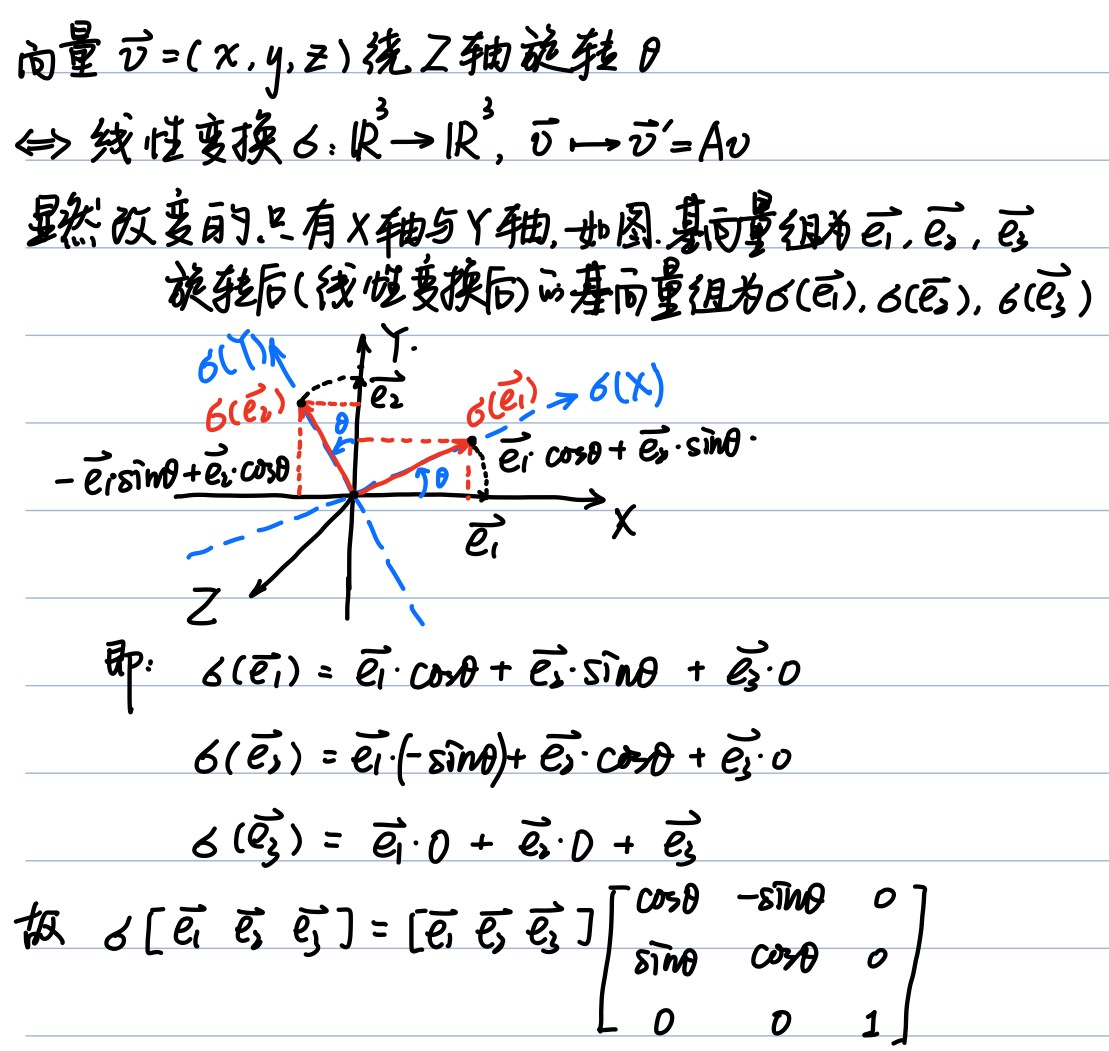 向量 v⃗ =(x,y,z)绕Z轴旋转 θ
⟺ 线性变换 σ: ℝ³→ℝ³, v⃗ ↦ v⃗′=Av
显然改变的只有X轴与Y轴,如图.基向量组为 e₁⃗, e₂⃗, e₃⃗
旋转后(线性变换后)的基向量组为σ(e₁⃗), σ(e₂⃗), σ(e₃⃗)
σ(Y) Y.
σ(e₂⃗) e₂⃗ σ(e₁⃗) σ(X)
θ
-e₁⃗sinθ+e₂⃗·cosθ θ e₁⃗·cosθ + e₂⃗·sinθ·
e₁⃗ X
Z
即: σ(e₁⃗) = e₁⃗·cosθ + e₂⃗·sinθ + e₃⃗·0
σ(e₂⃗) = e₁⃗·(-sinθ)+ e₂⃗·cosθ + e₃⃗·0
σ(e₃⃗) = e₁⃗·0 + e₂⃗·0 + e₃⃗
故 σ[e₁⃗ e₂⃗ e₃⃗] = [e₁⃗ e₂⃗ e₃⃗] [cosθ -sinθ 0
sinθ cosθ 0
0 0 1]